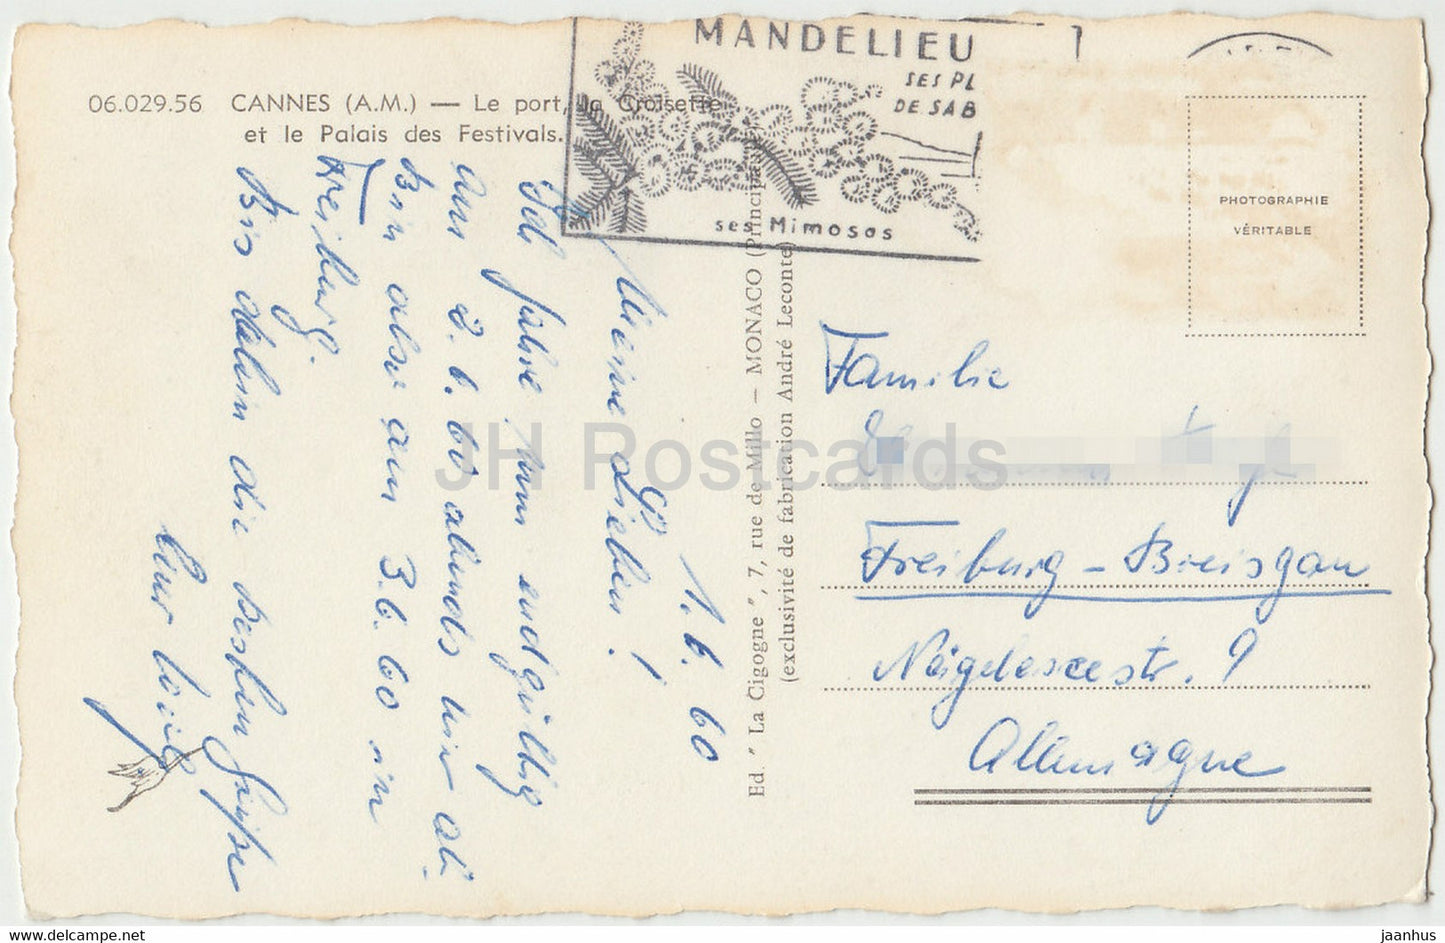 06.029.56 CANNES (A.M.) — Le port, la Croisette
et le Palais des Festivals.
MANDELIEU
SES PL
DE SAB
ses Mimosas
PHOTOGRAPHIE
VÉRITABLE
1.6.60
Meine Lieben!
Ich fahre nun endgültig
am 2.6.60 abends hier ab.
Bin also am 3.6.60 in
Freiburg.
Bis dahin die besten Grüße
Eur
Ed. "La Cigogne", 7, rue de Millo — MONACO (Principauté)
(exclusivité de fabrication André Leconte)
Familie
Freiburg-Breisgau
Nägeleseestr. 9
Allemagne
JH Postcards
www.delcampe.net
jaanhus